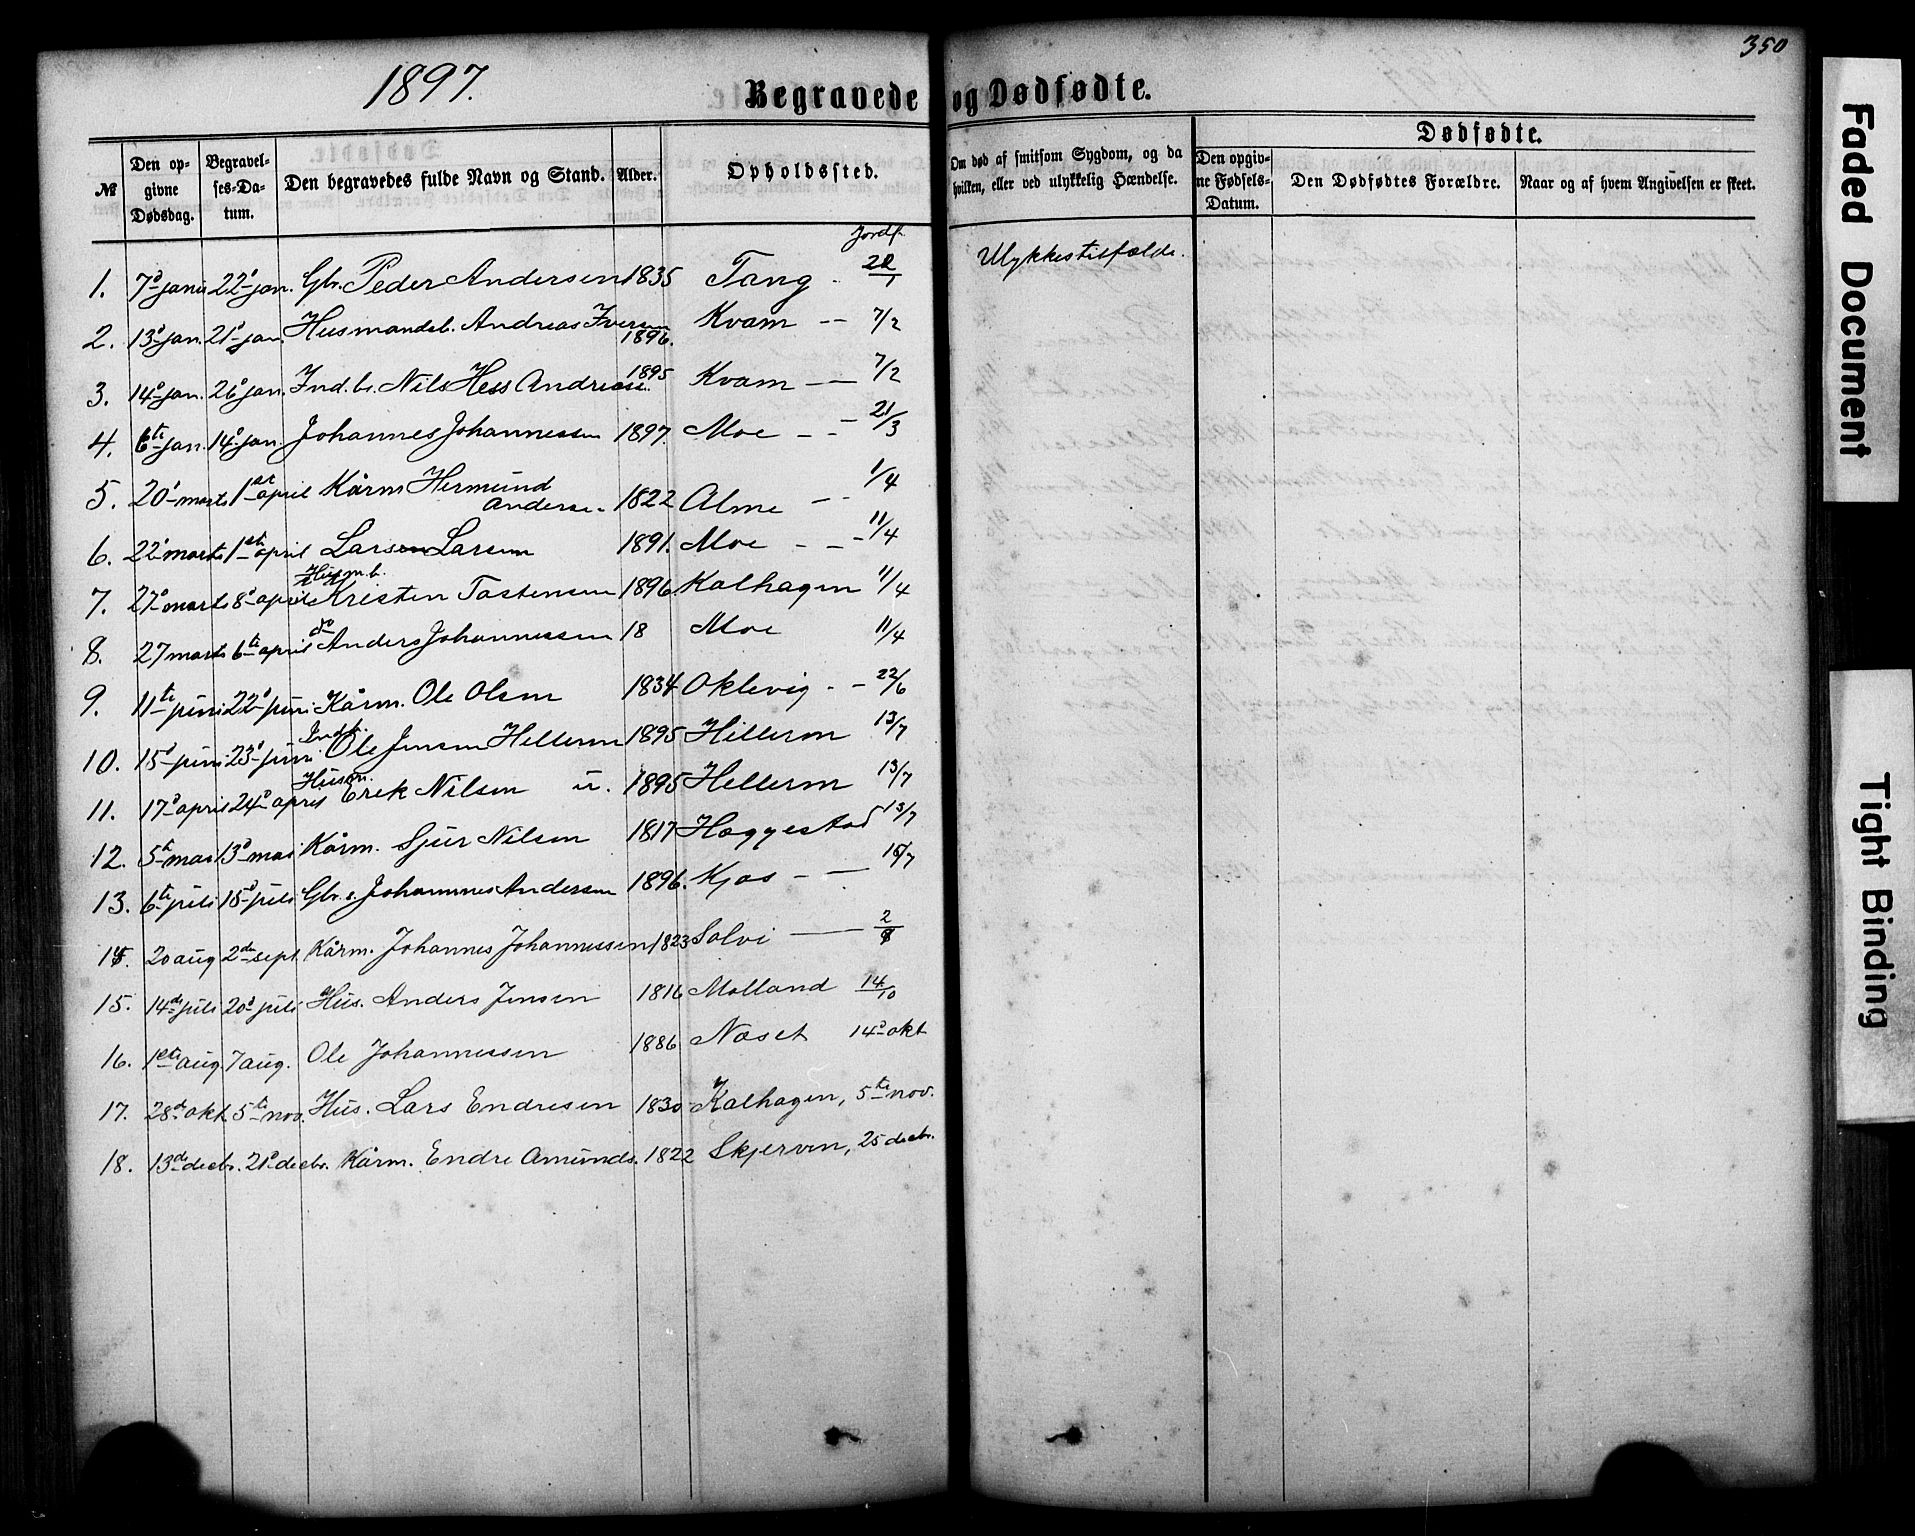 350
1897.
Begravede og Dødfødte.
Dødfødte.
№
Den op-
givne
Dødsdag.
Begravel-
ses-Da-
tum.
Den begravedes fulde Navn og Stand.
Alder.
Opholdssted.
Om død af smitsom Sygdom, og da
hvilken, eller ved ulykkelig Hændelse.
Den opgiv-
ne Fødsels-
Datum.
Den Dødfødtes Forældre.
Naar og af hvem Angivelsen er skeet.
Jordf.
1. 7d janu 22d jan. Gbr. Peder Andersen 1835 Tang - 22/1 Ulykkestilfælde.
2. 13d jan. 21d jan. Husmandsb. Andreas Iversen 1896. Kvam — 7/2
3. 14d jan. 26d jan. Ind. b. Nils Andreasen. 1895 Kvam — 7/2
4. 6te jan. 14d jan. Johannes Johannessen 1897. Moe — 21/3
5. 20d marts 1st april Kårm. Hermund
Anderse. 1822 Alme — 1/4
6. 22d marts 1ste april Lars Larsen 1891. Moe — 11/4
Husm.b.
7. 27d marts 8d april Kresten Tostensen 1896 Kalhagen 11/4
8. 27 marts 6te april do Anders Johannessen 18 Moe 11/4
9. 11te juni 22d juni Kårm. Ole Olsen 1834 Oklevig - 22/6
10. 15d juni 23d juni Ole Jensen Helleren 1895 Hilleren 13/7
Husm.
11. 17d april 24d april Erik Nilsen u. 1895 Helleren 13/7
12. 5te mai 13d mai Kårm. Sjur Nilsen 1817 Haggestad 13/7
13. 6te juli 15d juli Gbr. s. Johannes Andersen 1896. Kjos — 15/7
14. 20 aug 2den sept. Kårm. Johannes Johannessen 1823 Solvi — 2/9
15. 14de juli 20d juli Hus. Anders Jensen 1816 Molland 14/10
16. 1ste aug. 7 aug. Ole Johannessen 1886 Naset 14d okt
17. 28d okt. 5te nov. Hus. Lars Endresen 1830 Kalhagen, 5te nov.
18. 13de decbr. 21d decbr. Kårm. Endre Amunds. 1822 Skjerven, 25 decbr.
Faded Document
Tight Binding